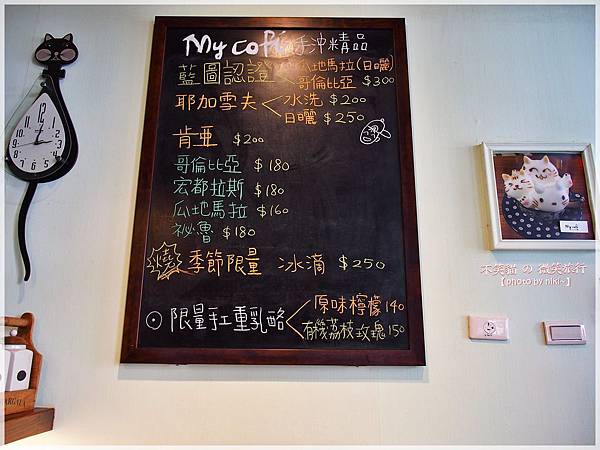 My coffee 手沖精品
藍圖認證 瓜地馬拉(日曬)
哥倫比亞 $300
耶加雪夫 水洗 $200
日曬 $250
肯亞 $200
哥倫比亞 $180
宏都拉斯 $180
瓜地馬拉 $160
祕魯 $180
季節限量 冰滴 $250
限量手工重乳酪 原味檸檬 140
有機荔枝玫瑰 150
不笑貓 の 微笑旅行
【photo by niki~】